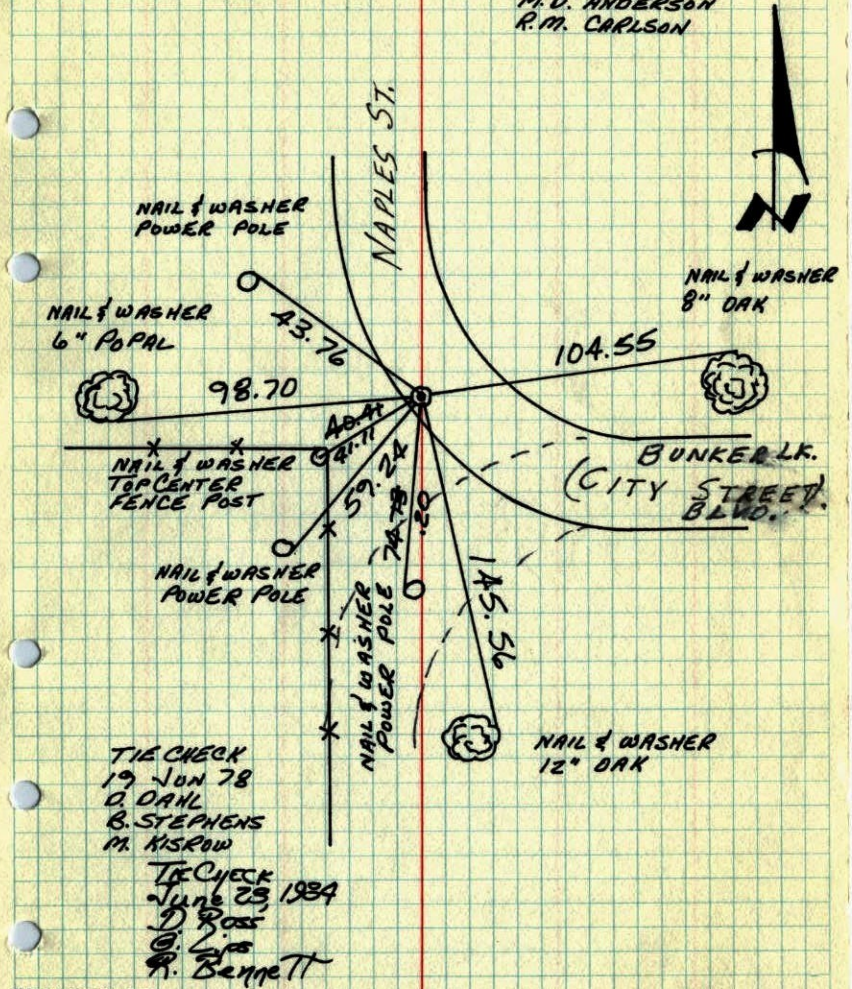 M.D. ANDERSON
R.M. CARLSON
NAPLES ST.
N
NAIL & WASHER
POWER POLE
43.76
NAIL & WASHER
8" OAK
104.55
NAIL & WASHER
6" POPAL
98.70
40.41
41.11
NAIL & WASHER
TOP CENTER
FENCE POST
59.24
BUNKER LK.
(CITY STREET)
BLVD.
74.73
.20
NAIL & WASHER
POWER POLE
NAIL & WASHER
POWER POLE
145.56
NAIL & WASHER
12" OAK
TIE CHECK
19 JUN 78
D. DAHL
B. STEPHENS
M. KISROW
Tie Check
June 28, 1984
D Ross
R. Bennett